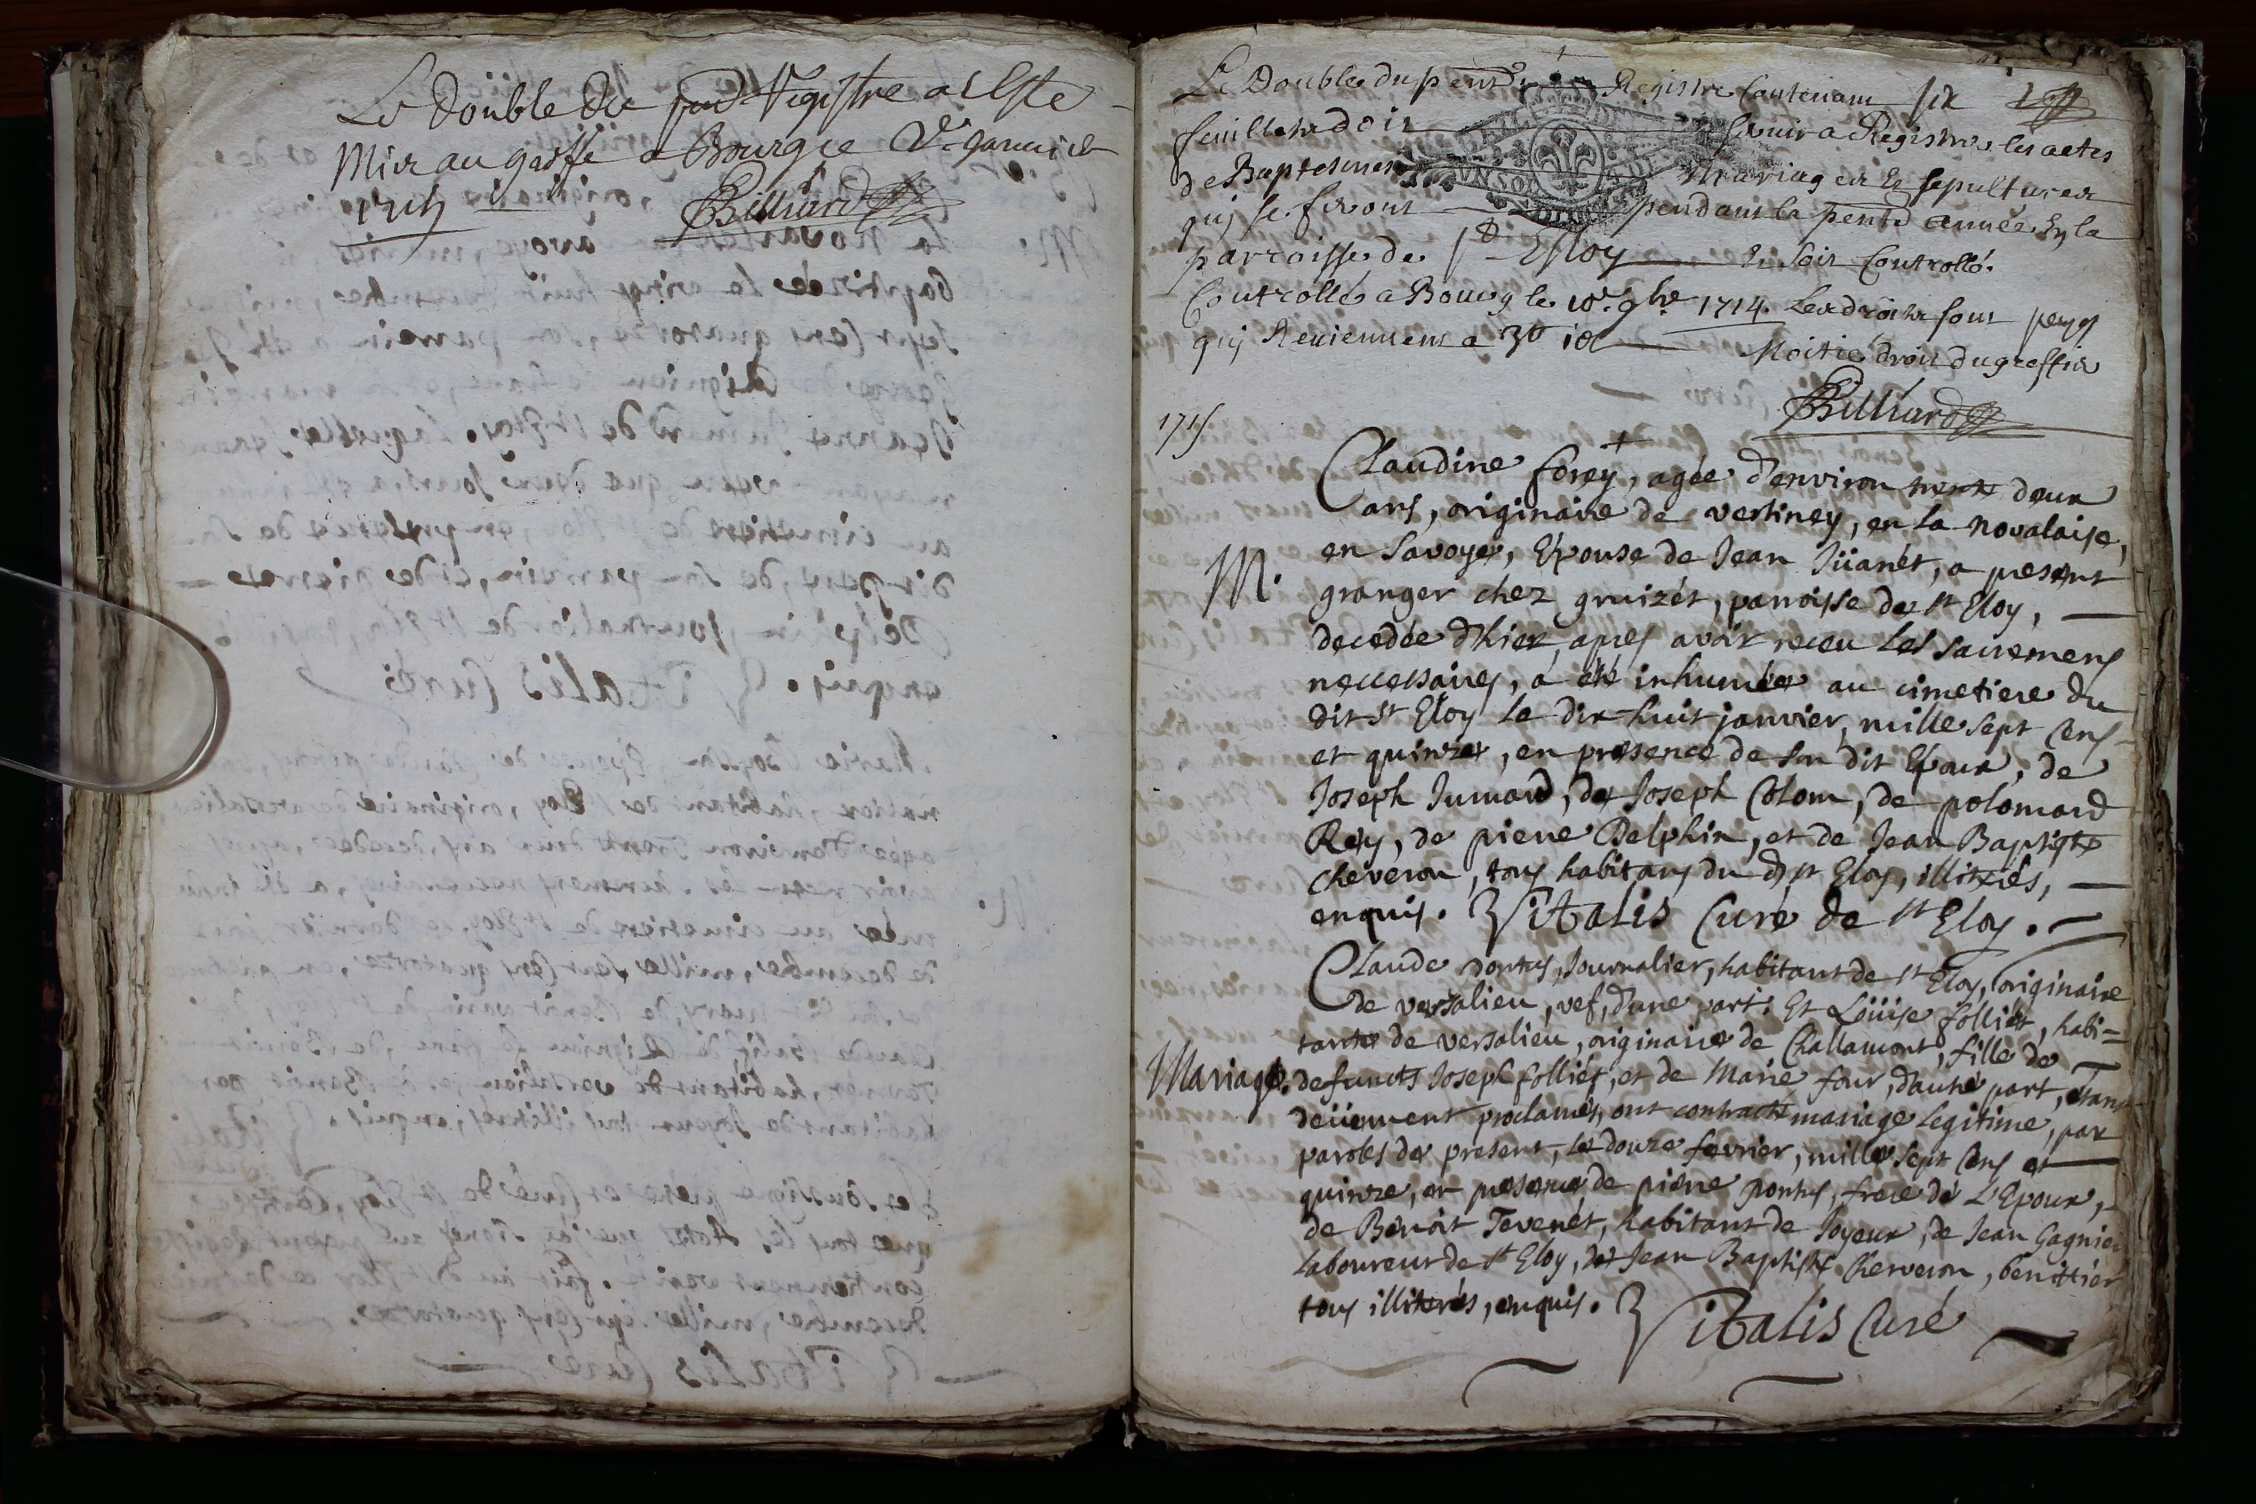 Le double du pnt Registre a este
Mis au greffe a Bourg ce Ve janvier
1715
Billiard
Le Double du pent Registre Contenant six
feuillets doit servir a Registrer les actes
de Baptesmes Mariages Et sepultures
quj se feront pendant la pente année En la
parroisse de St Eloy Et Soit Controllé.
Controllé a Bourg le 10e 9bre 1714. Les droits sont payes
quj Reviennent a 3# 10s Moitié droit du greffier
Billiard
1715
Claudine forey, agée d'environ trente deux
ans, originaire de vertiney, en la novalaise,
en Savoye, Epouse de Jean Jüanét, a present
M. granger chez gruizét, parroisse de st Eloy,
decedée d'hier, apres avoir receu les sacremens
necessaires, a été inhumée au cimetiere du
dit st Eloy le dix-huit janvier, mille sept cens
et quinze, en presence de son dit Epoux, de
Joseph Jumard, de Joseph Colom, de polomard
Rey, de pierre Delphin, et de Jean Baptiste
cheveron, tous habitans du d st Eloy, illiterés,
enquis. Vitalis Curé de st Eloy.
Claude pontus, Journalier, habitant de st Eloy, originaire
de versalieu, vef, d'une part. Et Loüise folliét, habi=
tante de versalieu, originaire de Challamont, fille de
Mariage. defuncts Joseph folliét, et de Marie four, d'autre part, étans
deüement proclamés, ont contracté mariage legitime, par
paroles de present, le douze fevrier, mille sept cens et
quinze, en presence de pierre pontus, frere de L'Epoux,
de Benoit Tevenét, habitant de Joyeux, de Jean Gagnieu
Laboureur de st Eloy, de Jean Baptiste Cherveron, benittier
tous illiterés, enquis. Vitalis Curé